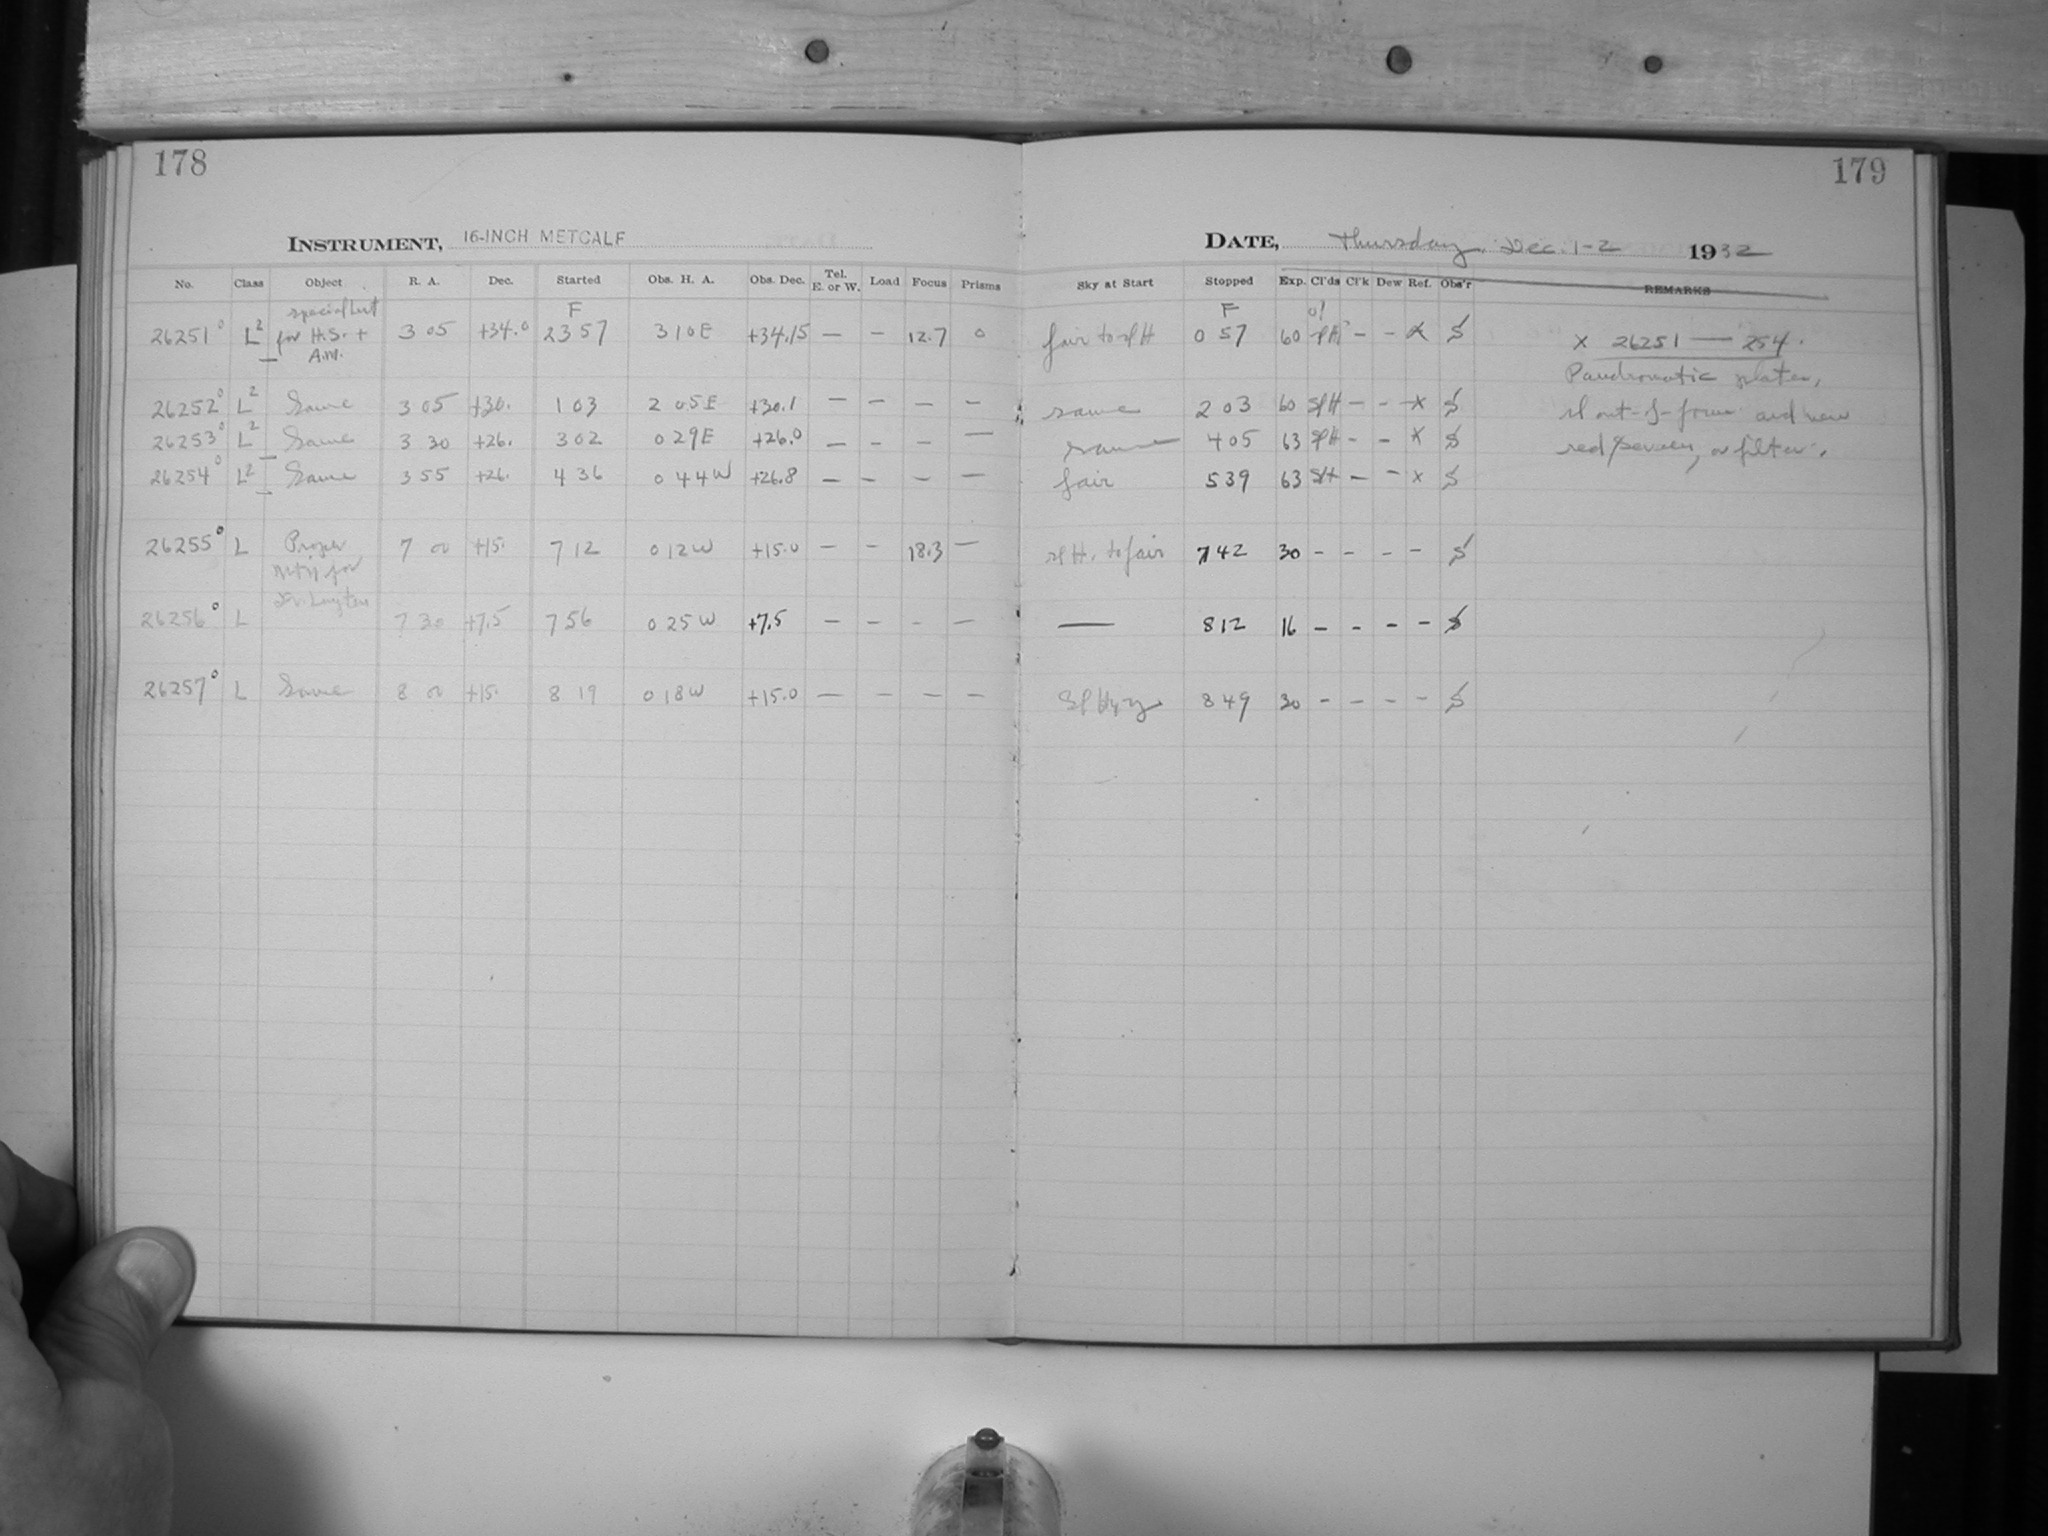 178
179
INSTRUMENT, 16-INCH METCALF
DATE, Thursday, Dec. 1-2 1932
No. Class Object R. A. Dec. Started Obs. H. A. Obs. Dec. Tel. E. or W. Load Focus Prisms Sky at Start Stopped Exp. Cl'ds Cl'k Dew Ref. Obs'r REMARKS
special
F F
26251° L² for H.S. + 3 05 +34.0 23 57 3 10 E +34.15 — - 12.7 0 fair to sl H 0 57 60 sl H - - x S x 26251 — 254.
A.W.
Panchromatic plates,
26252° L² Same 3 05 +30. 1 03 2 05 E +30.1 - - - - same 2 03 60 sl H - - x S sl out-of-focus and new
26253° L² Same 3 30 +26. 3 02 0 29 E +26.0 - - - - same 4 05 63 sl H - - x S red screen, or filter.
26254° L² Same 3 55 +26. 4 36 0 44 W +26.8 - - - - fair 5 39 63 sl H - - x S
26255° L Proper 7 00 +15. 7 12 0 12 W +15.0 - - 18.3 - sl H. to fair 7 42 30 - - - - S
Mtn for
Dr. Luyten
26256° L 7 30 +7.5 7 56 0 25 W +7.5 - - - - — 8 12 16 - - - - S
26257° L Same 8 00 +15. 8 19 0 18 W +15.0 - - - - Sl Hzy 8 49 30 - - - - S